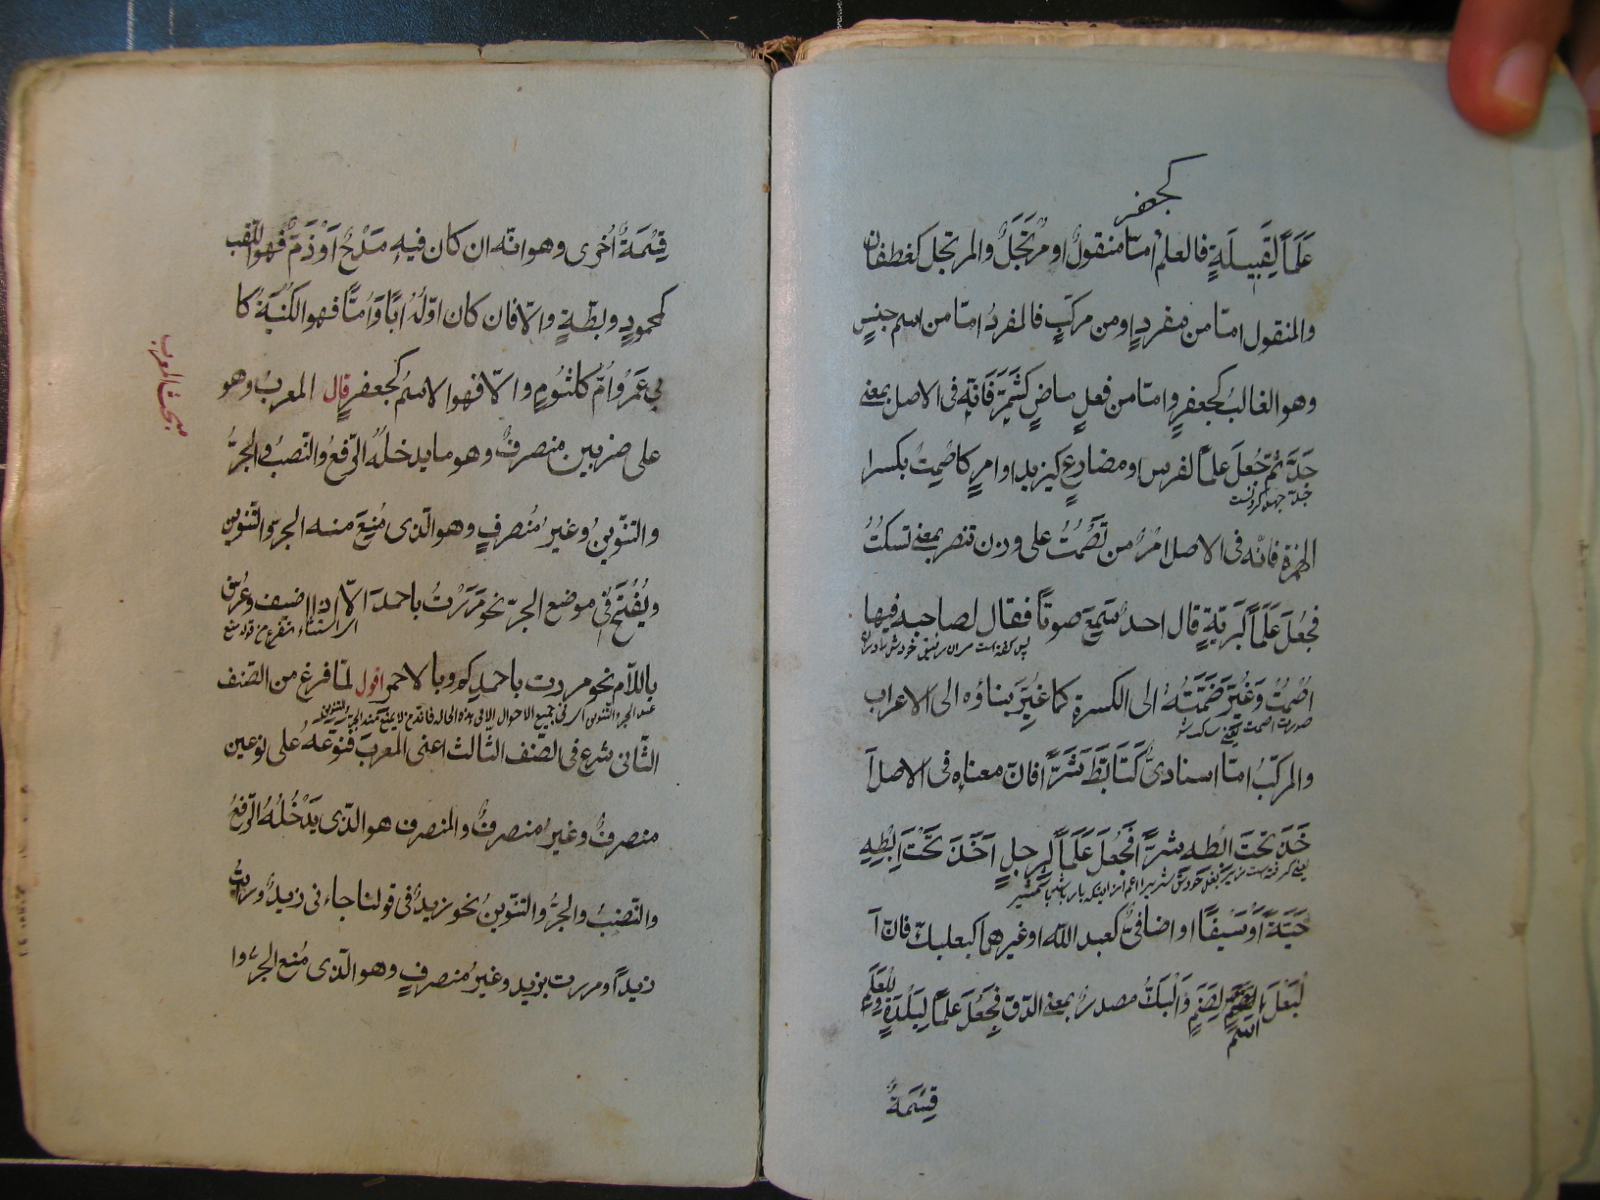 كجعفر
عَلَمًا لِقَبِيلَةٍ فالعلم امّا منقولٌ او مُرْتَجَلٌ والمرتجل كغطفان
والمنقول امّا من مفردٍ او من مركّبٍ فالمفردُ امّا من اسم جنسٍ
وهو الغالبُ كجعفرٍ وامّا من فعلٍ ماضٍ كشَمَّرَ فَانّه فى الاصل بمعنى
جَدَّ ثمّ جُعِلَ علمًا لفرس او مضارعٍ كيزيد او امرٍ كاصْمِتْ بكسر ا
لهمزة فانّه فى الاصل امرٌ من تَصْمُتُ على وزن تنصر بمعنى تسكتُ
فجُعلَ عَلَمًا لبَرّيّةٍ قال احدٌ سَمِعَ صوتًا فقال لصاحبه فيها
پس گفته است مران رفيق خودش را دران
اصْمُتْ وَغُيّرَ ضَمَّتُهُ الى الكسرةِ كما غُيِّرَ بناؤه الى الاعراب
والمركّبُ امّا اسنادىٌّ كَتَابَّطَ شَرًّا فانّ معناه فى الاصل آ
خَذَ تَحْتَ ابْطه شرًّا فَجُعلَ عَلَمًا لِرجلٍ اَخَذَ تَحْتَ اِبْطِهِ
حَيّةً اَوْ سَيْفًا او اضافىٌّ كعبد اللّه او غيرهما كبعلبكّ فانّ آ
لبَعْلَ اسم لِصَنَمٍ وَالْبَكّ مصدرٌ بمعنى الدّق فَجُعَلَ علمًا لِبَلْدَةٍ وللعَلَمِ
قِسْمَةٌ
قِسْمَةٌ اُخرى وهو انّه ان كان فيهِ مَدْحٌ اَوْ ذَمٌّ فهو اللّقب
كمحمودٍ وبطّةٍ والّا فان كان اوّلُهُ اَبًا وَاُمًّا فهو الكُنْيَةُ كا
بي عَمْرٍو وَاُمّ كلثُومٍ والّا فهو الاسمُ كجعفرٍ قال المعربُ وهو
مبحث المعرب
على ضربين منصرفٌ وهو ما يدخلُهُ الرّفعُ والنّصبُ والجرُّ
والتّنوينُ وغيرُ مُنصرفٍ وهو الّذى مُنِعَ منه الجرّ والتّنوين
ويُفْتَحُ فى موضع الجرّ نحو مَرَرْتُ باحمدَ الّا اذا اضيف وعُرّف
باللاّم نحو مررت باحمدِكم وبالاحمرِ اقول لمّا فرغ من الصّنف
الثّانى شرع فى الصّنف الثالث اعنى المُعْربَ فنوّعهُ على نوعين
منصرفٌ وغيرُ منصرفٌ والمنصرف هو الّذى يَدْخُلُهُ الرّفعُ
والنّصبُ والجرُّ والتّنوينُ نحو زيدٌ فى قولنا جاءنى زيدٌ ورايتُ
زيداً ومررت بزيد وغيرُ مُنصرفٍ وهو الّذى مُنع الجرّ وا